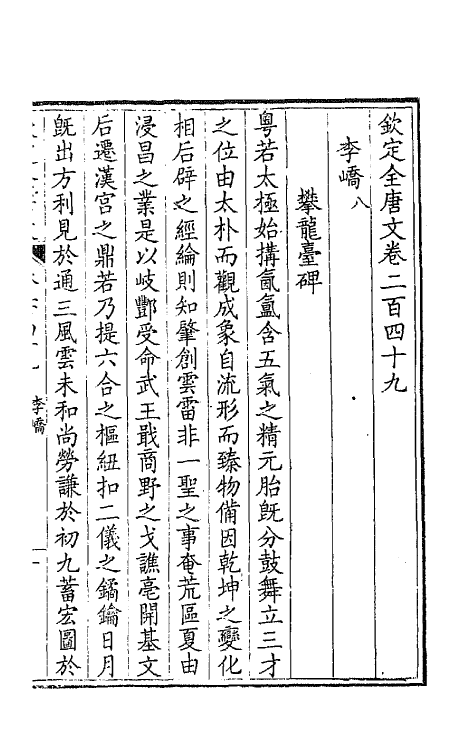 欽定全唐文卷二百四十九
李嶠八
攀龍臺碑
粵若太極始搆氤氳含五氣之精元胎旣分鼓舞立三才
之位由太朴而觀成象自流形而臻物備因乾坤之變化
相后辟之經綸則知肇創雲雷非一聖之事奄荒區夏由
浸昌之業是以岐酆受命武王戢商野之戈譙亳開基文
后遷漢宮之鼎若乃提六合之樞紐扣二儀之鐍鑰日月
旣出方利見於通三風雲未和尚勞謙於初九蓄宏圖於
李嶠